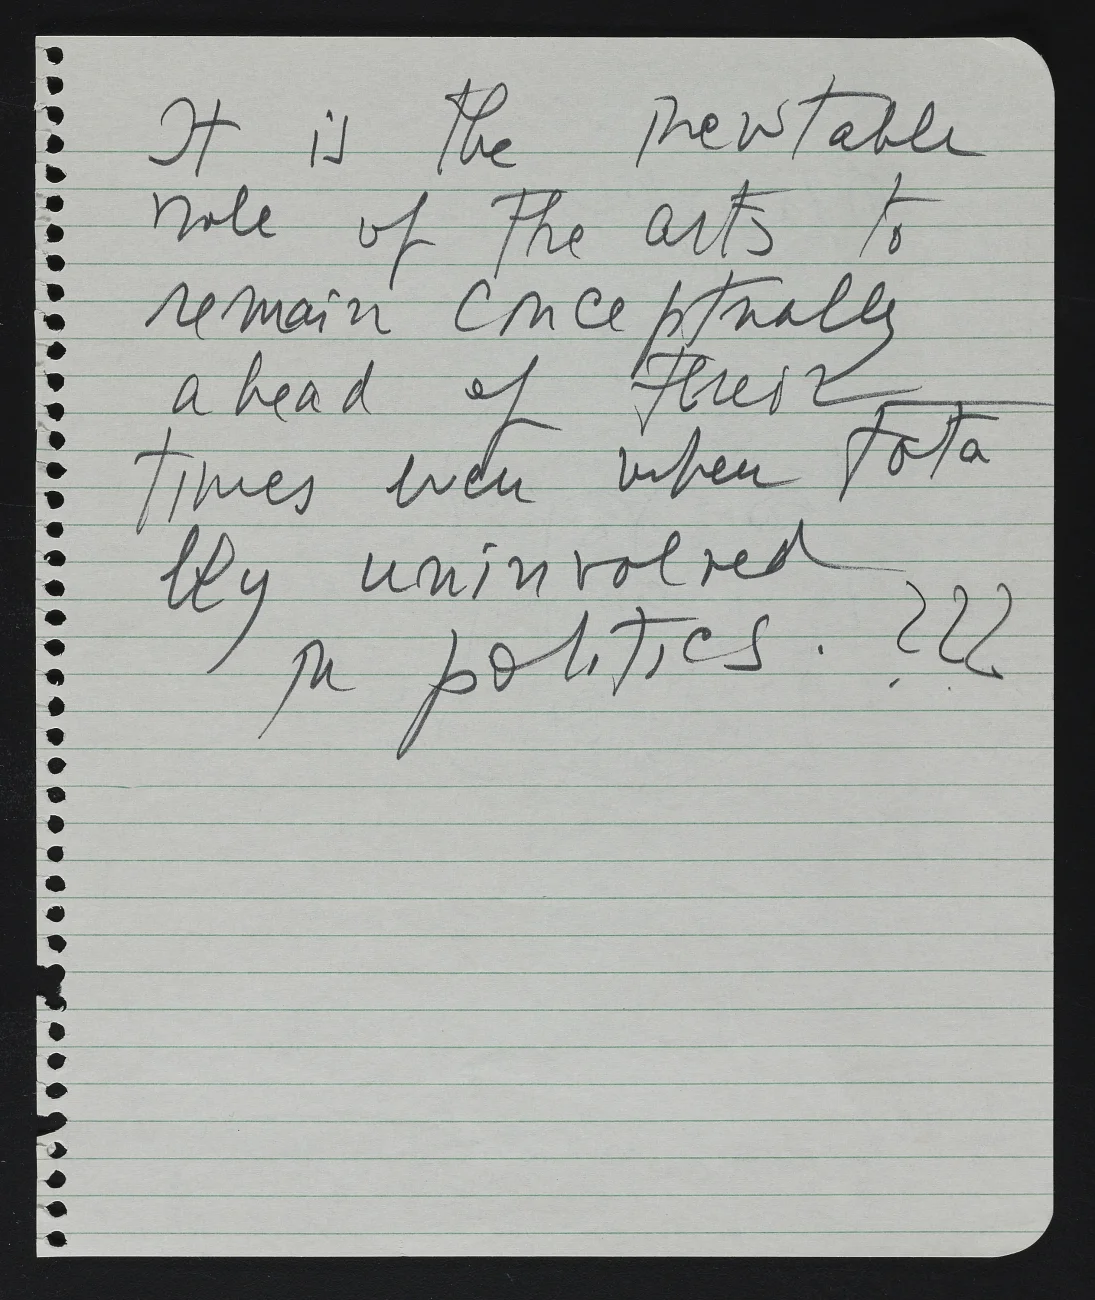 It is the inevitable
role of the arts to
remain conceptually
ahead of their
times even when tota
lly uninvolved
in politics. ???